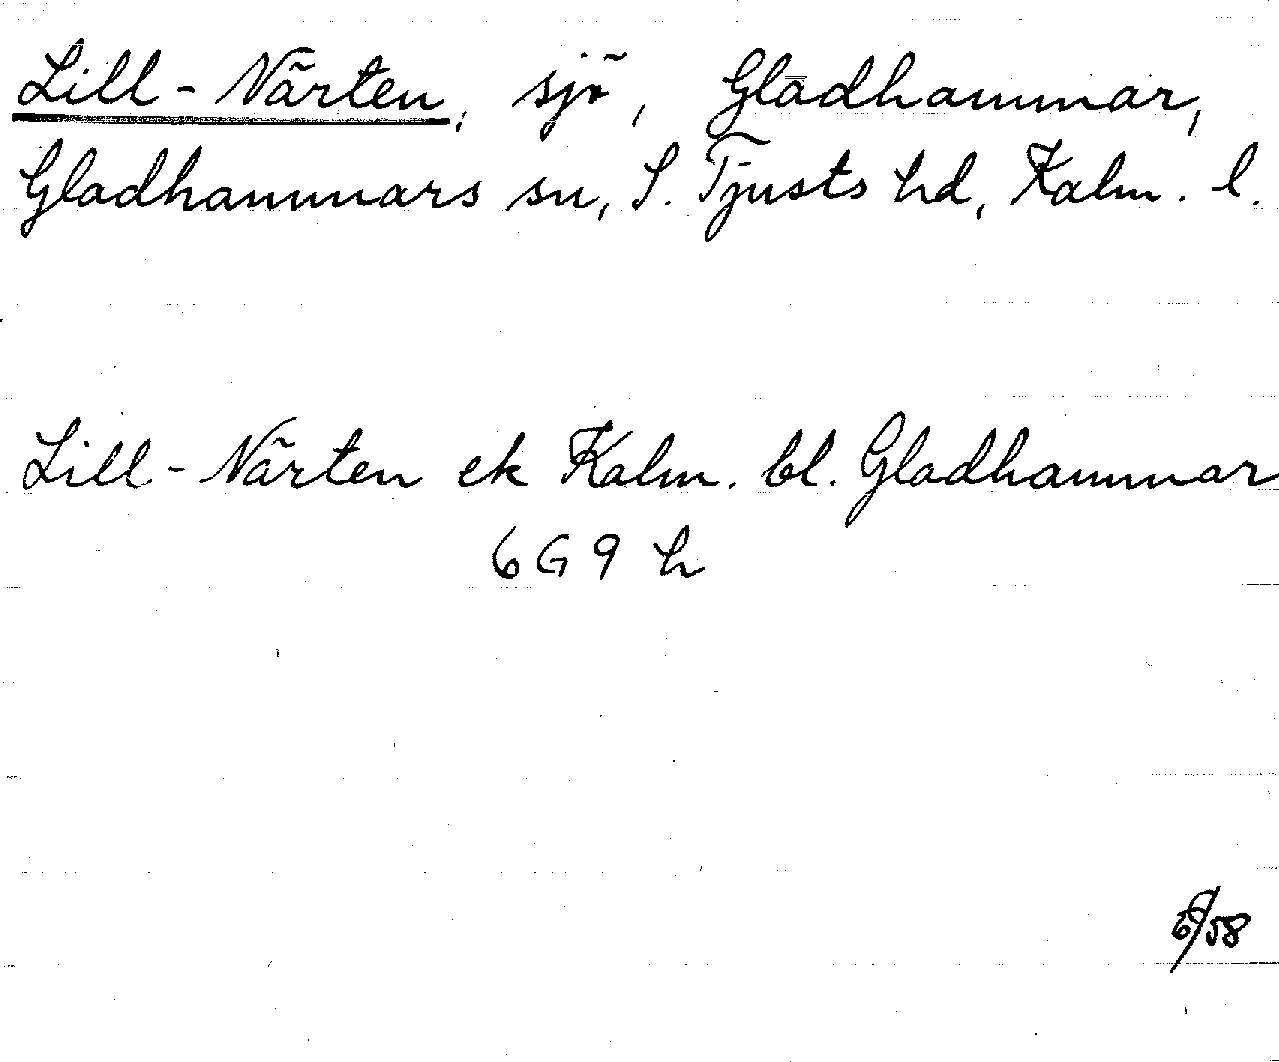 Lill-Närten, sjö, Gladhammar,
Gladhammars sn, S. Tjusts hd, Kalm. l.
Lill-Närten ek Kalm. bl. Gladhammar
6G9 h
6/58